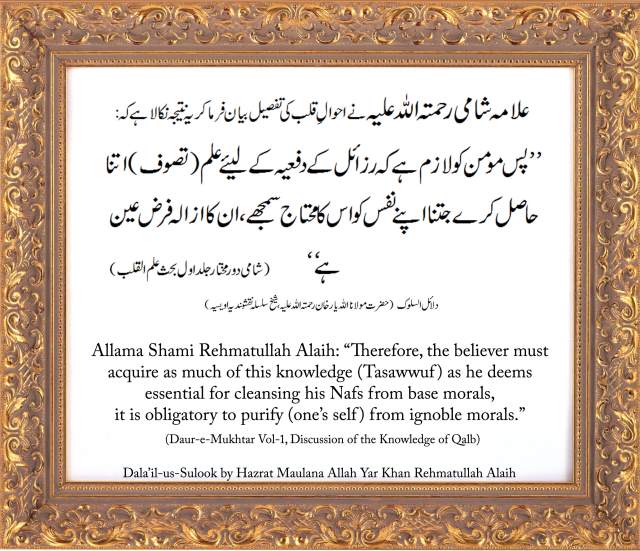 علامہ شامی رحمتہ اللہ علیہ نے احوالِ قلب کی تفصیل بیان فرما کر یہ نتیجہ نکالا ہے کہ:
”پس مؤمن کو لازم ہے کہ رزائل کے دفعیہ کے لیئے علم (تصوف) اتنا
حاصل کرے جتنا اپنے نفس کو اس کا محتاج سمجھے، ان کا ازالہ فرض عین
ہے“ (شامی دور مختار جلد اول بحث علم القلب)
دلائل السلوک (حضرت مولانا اللہ یار خان رحمتہ اللہ علیہ، شیخ سلسلہ نقشبندیہ اویسیہ)
Allama Shami Rehmatullah Alaih: “Therefore, the believer must
acquire as much of this knowledge (Tasawwuf) as he deems
essential for cleansing his Nafs from base morals,
it is obligatory to purify (one’s self) from ignoble morals.”
(Daur-e-Mukhtar Vol-1, Discussion of the Knowledge of Qalb)
Dala’il-us-Sulook by Hazrat Maulana Allah Yar Khan Rehmatullah Alaih